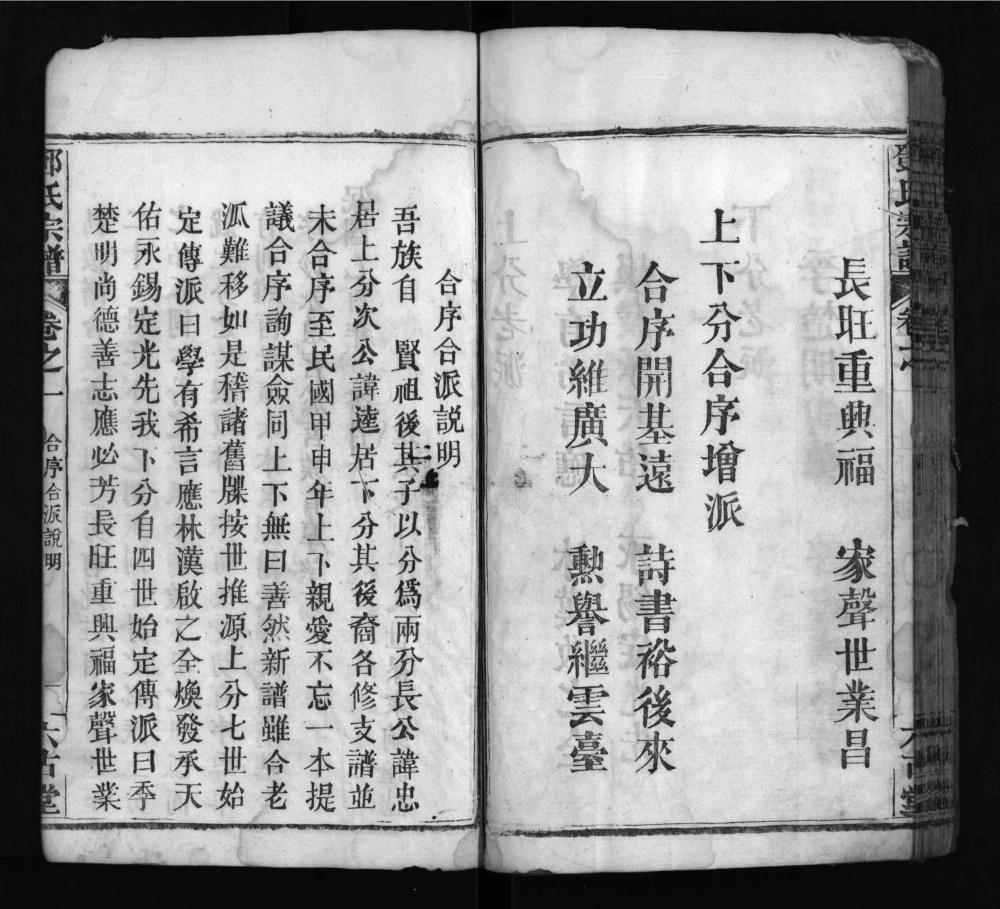 長旺重興福　家聲世業昌
上下分合序增派
合序開基遠　詩書裕後來
立功維廣大　勲譽繼雲臺
合序合派説明
吾族自　賢祖後其子以分爲兩分長公諱忠
居上分次公諱逵居下分其後裔各修支譜並
未合序至民國甲申年上下親愛不忘一本提
議合序詢謀僉同上下無曰善然新譜雖合老
派難移如是稽諸舊牒按世推源上分七世始
定傳派曰學有希言應林漢啟之全煥發承天
佑永錫定光先我下分自四世始定傳派曰季
楚明尚德善志應必芳長旺重興福家聲世業
鄧氏宗譜　卷之一　合序合派説明　六吉堂